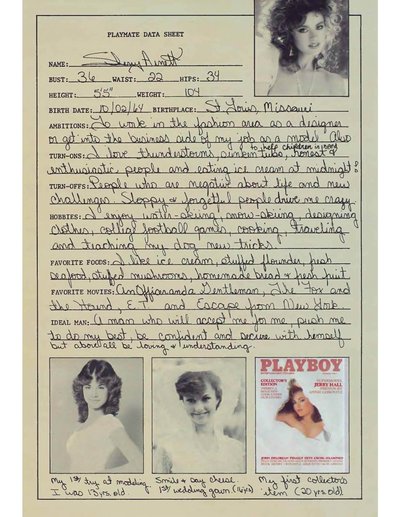 PLAYMATE DATA SHEET
NAME:
BUST: 36 WAIST: 22 HIPS: 34
HEIGHT: 5'5" WEIGHT: 104
BIRTH DATE: 10/02/64 BIRTHPLACE: St. Louis, Missouri
AMBITIONS: To work in the fashion area as a designer
or get into the business side of my job as a model. Also
to help children in need
TURN-ONS: I love thunderstorms, honest &
enthusiastic people and eating ice cream at midnight!
TURN-OFFS: People who are negative about life and new
challenges. Sloppy & forgetful people drive me crazy.
HOBBIES: I enjoy water-skiing, snow-skiing, designing
clothes, college football games, cooking, traveling
and teaching my dog new tricks.
FAVORITE FOODS: I like ice cream, stuffed flounder, fresh
seafood, stuffed mushrooms, homemade bread & fresh fruit.
FAVORITE MOVIES: An Officer and a Gentleman, The Fox and
the Hound, E.T. and Escape from New York
IDEAL MAN: A man who will accept me for me, push me
to do my best, be confident and secure with himself
but above all be loving & understanding.
PLAYBOY
COLLECTOR'S
EDITION
JERRY HALL
My 1st try at modeling.
I was 13 yrs. old.
Smile & say cheese
1st wedding gown (16 yrs)
My first collectors
item (20 yrs. old)